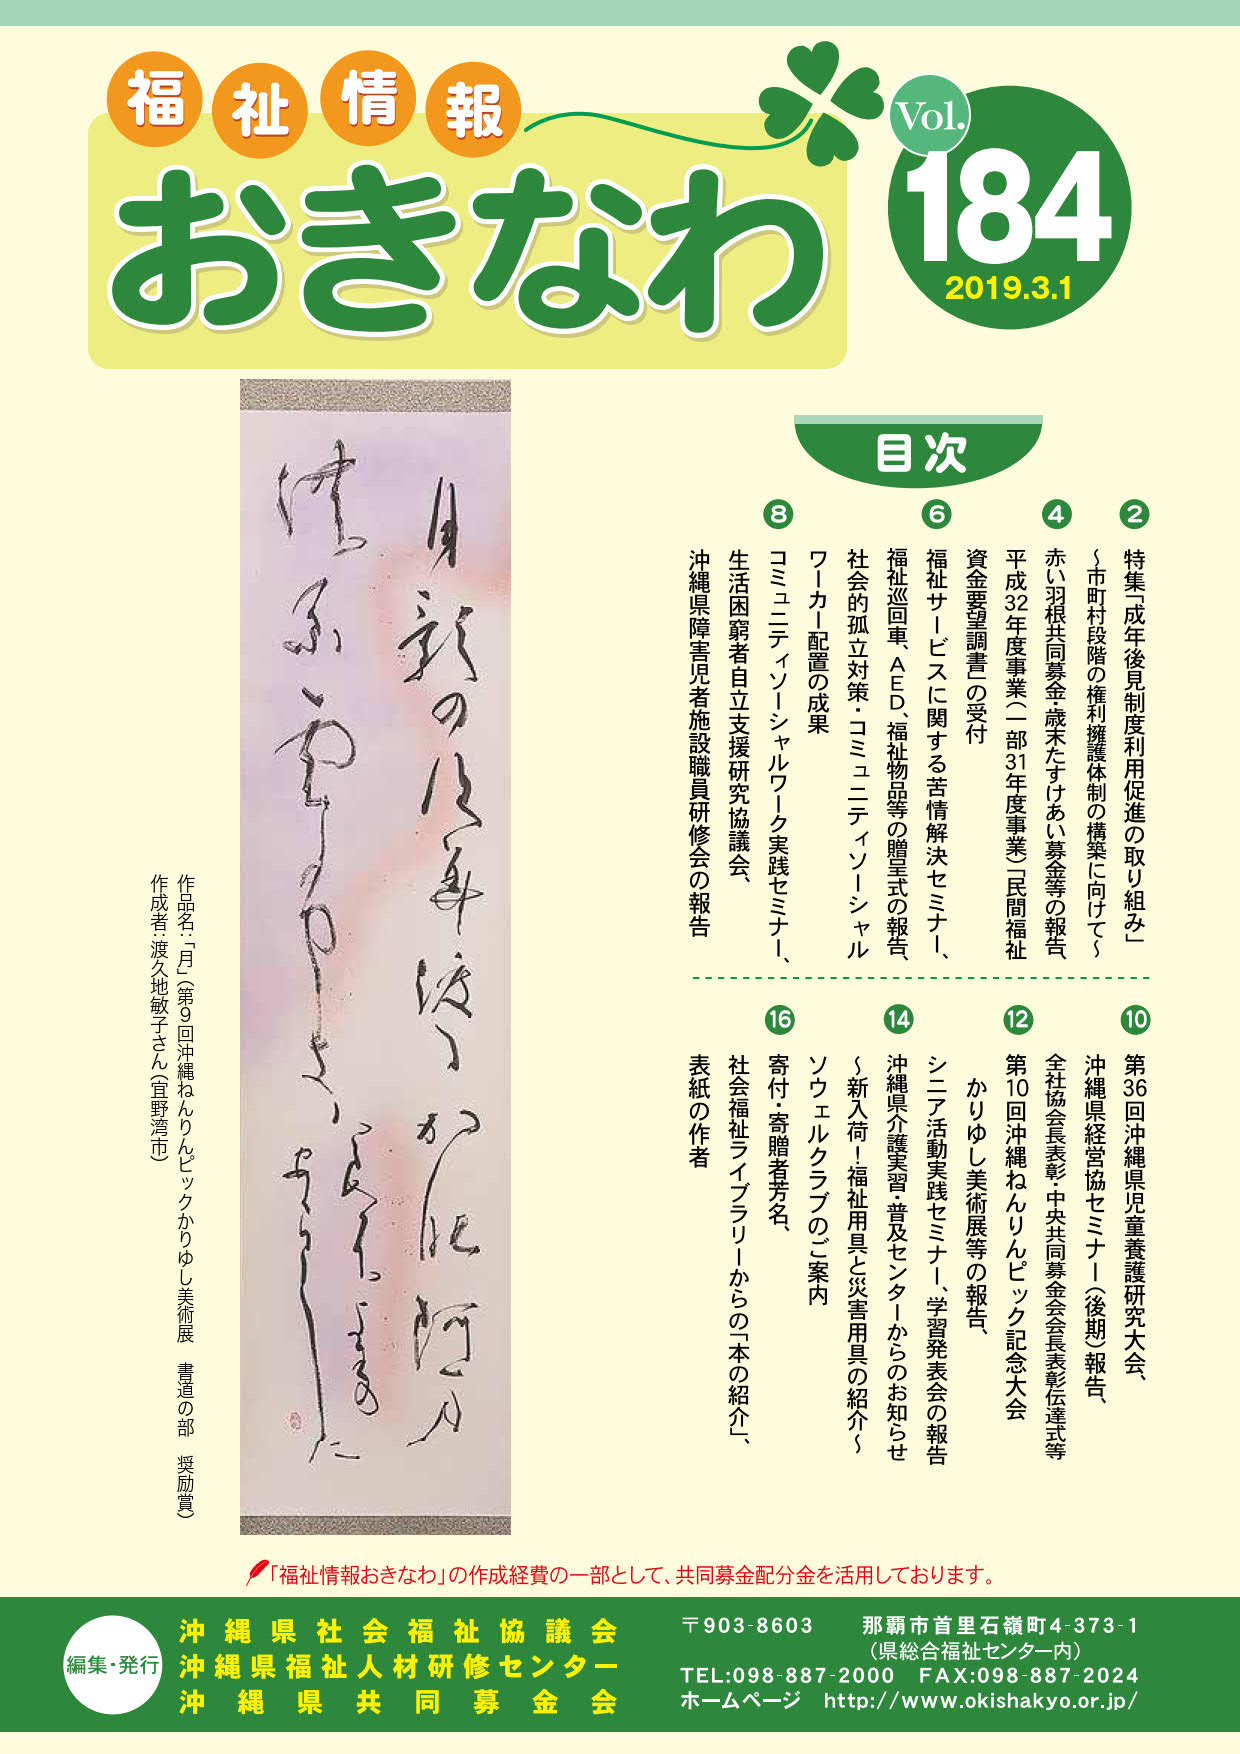 福祉情報
おきなわ
Vol.
184
2019.3.1
目次
2
特集「成年後見制度利用促進の取り組み」
～市町村段階の権利擁護体制の構築に向けて～
4
赤い羽根共同募金・歳末たすけあい募金等の報告、
平成32年度事業(一部31年度事業)「民間福祉
資金要望調書」の受付
6
福祉サービスに関する苦情解決セミナー、
福祉巡回車、AED、福祉物品等の贈呈式の報告、
社会的孤立対策・コミュニティソーシャル
ワーカー配置の成果
8
コミュニティソーシャルワーク実践セミナー、
生活困窮者自立支援研究協議会、
沖縄県障害児者施設職員研修会の報告
10
第36回沖縄県児童養護研究大会、
沖縄県経営協セミナー(後期)報告、
全社協会長表彰・中央共同募金会会長表彰伝達式等
12
第10回沖縄ねんりんピック記念大会
かりゆし美術展等の報告、
シニア活動実践セミナー、学習発表会の報告
14
沖縄県介護実習・普及センターからのお知らせ
～新入荷！福祉用具と災害用具の紹介～
ソウェルクラブのご案内
16
寄付・寄贈者芳名、
社会福祉ライブラリーからの「本の紹介」、
表紙の作者
作品名：「月」(第9回沖縄ねんりんピックかりゆし美術展　書道の部　奨励賞)
作成者：渡久地敏子さん(宜野湾市)
「福祉情報おきなわ」の作成経費の一部として、共同募金配分金を活用しております。
編集・発行
沖縄県社会福祉協議会
沖縄県福祉人材研修センター
沖縄県共同募金会
〒903-8603　那覇市首里石嶺町4-373-1
(県総合福祉センター内)
TEL:098-887-2000　FAX:098-887-2024
ホームページ　http://www.okishakyo.or.jp/